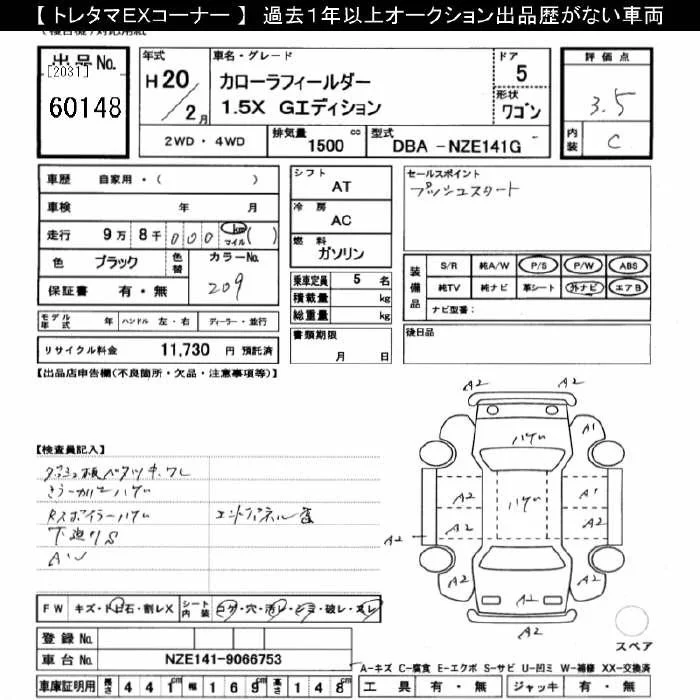 【トレタマEXコーナー】 過去1年以上オークション出品歴がない車両
出品No.
[2031]
60148
年式
H20/2月
車名・グレード
カローラフィールダー
1.5X Gエディション
ドア
5
形状
ワゴン
評価点
3.5
内装
C
2WD・4WD
排気量 1500 cc
型式 DBA -NZE141G
車歴 自家用・( )
車検 年 月
走行 9万 8千 000 km マイル ( )
色 ブラック 色替 カラーNo. 209
保証書 有・無
モデル年式 年 ハンドル 左・右 ディーラー・並行
リサイクル料金 11,730 円 預託済
シフト
AT
冷房
AC
燃料
ガソリン
乗車定員 5 名
積載量 kg
総重量 kg
書類期限
月 日
セールスポイント
プッシュスタート
装備品
S/R 純A/W P/S P/W ABS
純TV 純ナビ 革シート 外ナビ エアB
ナビ型番:
後日品
【出品店申告欄(不良箇所・欠品・注意事項等)】
【検査員記入】
RスポイラーハゲU
下廻りS
AW
エンドパネル
A2 A2
ハゲU
A2 A1
A2 ハゲU A1
A2 A2 A2
A2 A2 A2
A2
スペア
FW キズ・トビ石・割レX
シート内装 コゲ・穴・汚レ・シミ・破レ・スレ
登録No.
車台No. NZE141-9066753
A-キズ C-腐食 E-エクボ S-サビ U-凹ミ W-補修 XX-交換済
車庫証明用 長さ 441cm 幅 169cm 高さ 148cm
工具 有・無 ジャッキ 有・無